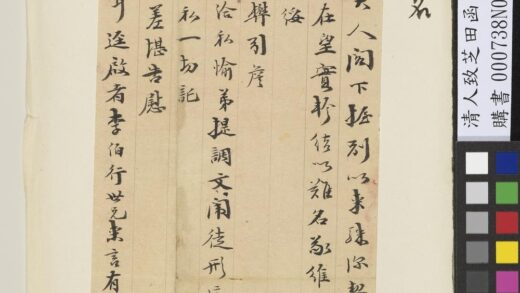 名
人閣下握別以來殊深
在望實軫結以難名敬維
綏
引詹
洽私愉弟提調文闈徒形
私一切託
差堪告慰
逕啟者李伯行世兄來言有
清人致芝田函
購書 000738N0